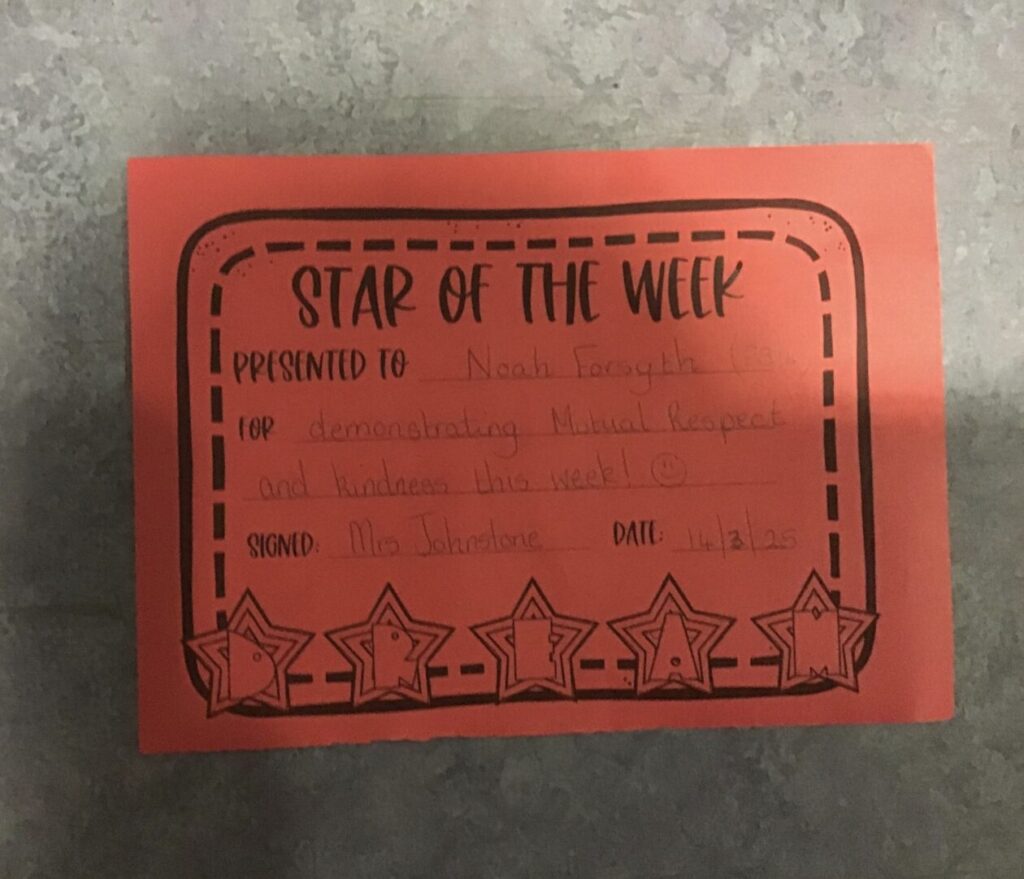 STAR OF THE WEEK
PRESENTED TO Noah Forsyth
FOR demonstrating Mutual Respect
and kindness this week!
SIGNED: Mrs Johnstone DATE: 14/3/25
DREAM